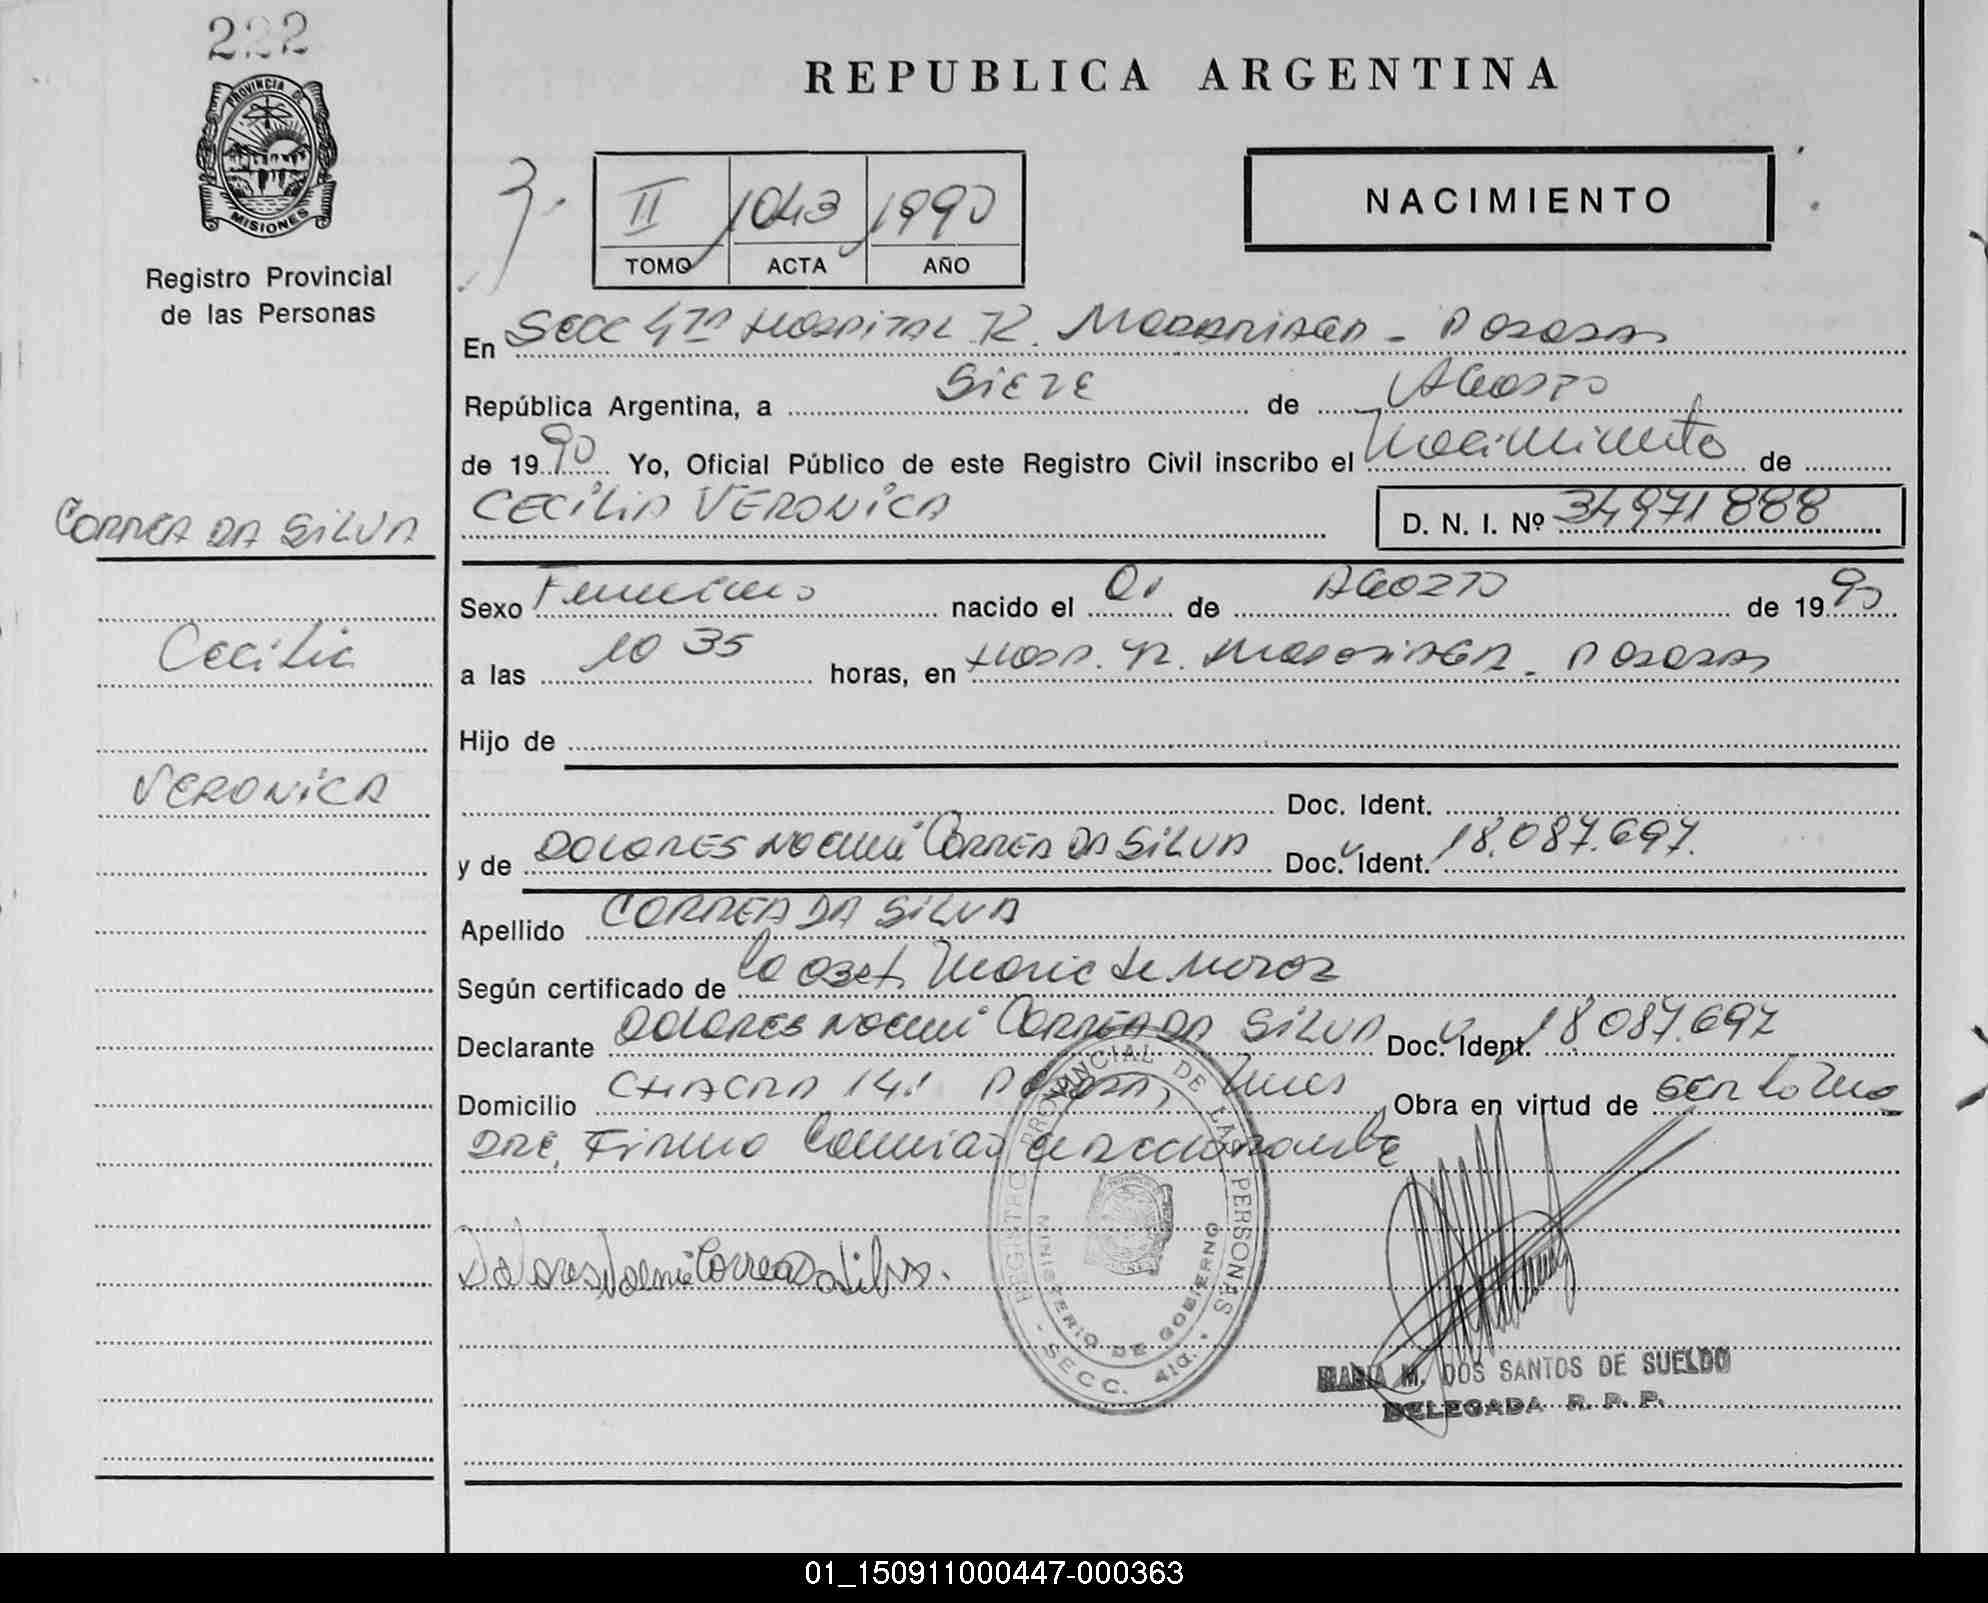 222
PROVINCIA DE
MISIONES
Registro Provincial
de las Personas
CORREA DA SILVA
Cecilia
VERONICA
REPUBLICA ARGENTINA
II 1043 1990
TOMO ACTA AÑO
NACIMIENTO
En Secc 4ta HOSPITAL R. MADARIAGA - POSADAS
República Argentina, a SIETE de AGOSTO
de 1990 Yo, Oficial Público de este Registro Civil inscribo el Nacimiento de
CECILIA VERONICA D. N. I. Nº 34971888
Sexo Femenino nacido el 01 de AGOSTO de 1990
a las 10 35 horas, en HOSP. R. MADARIAGA - POSADAS
Hijo de
Doc. Ident.
y de DOLORES NOEMI CORREA DA SILVA Doc. Ident. 18.087.697.
Apellido CORREA DA SILVA
Según certificado de la obst. Maria de
Declarante DOLORES NOEMI CORREA DA SILVA Doc. Ident. 18.087.697
Domicilio CHACRA 141 POSADAS, Mnes Obra en virtud de ser la madre, Firma conmigo el declarante
Dolores Noemi Correa Da Silva.
REGISTRO PROVINCIAL DE LAS PERSONAS
MINISTERIO DE GOBIERNO
- SECC. 4ta. -
MARIA M. DOS SANTOS DE SUELDO
DELEGADA R. P. P.
01_150911000447-000363